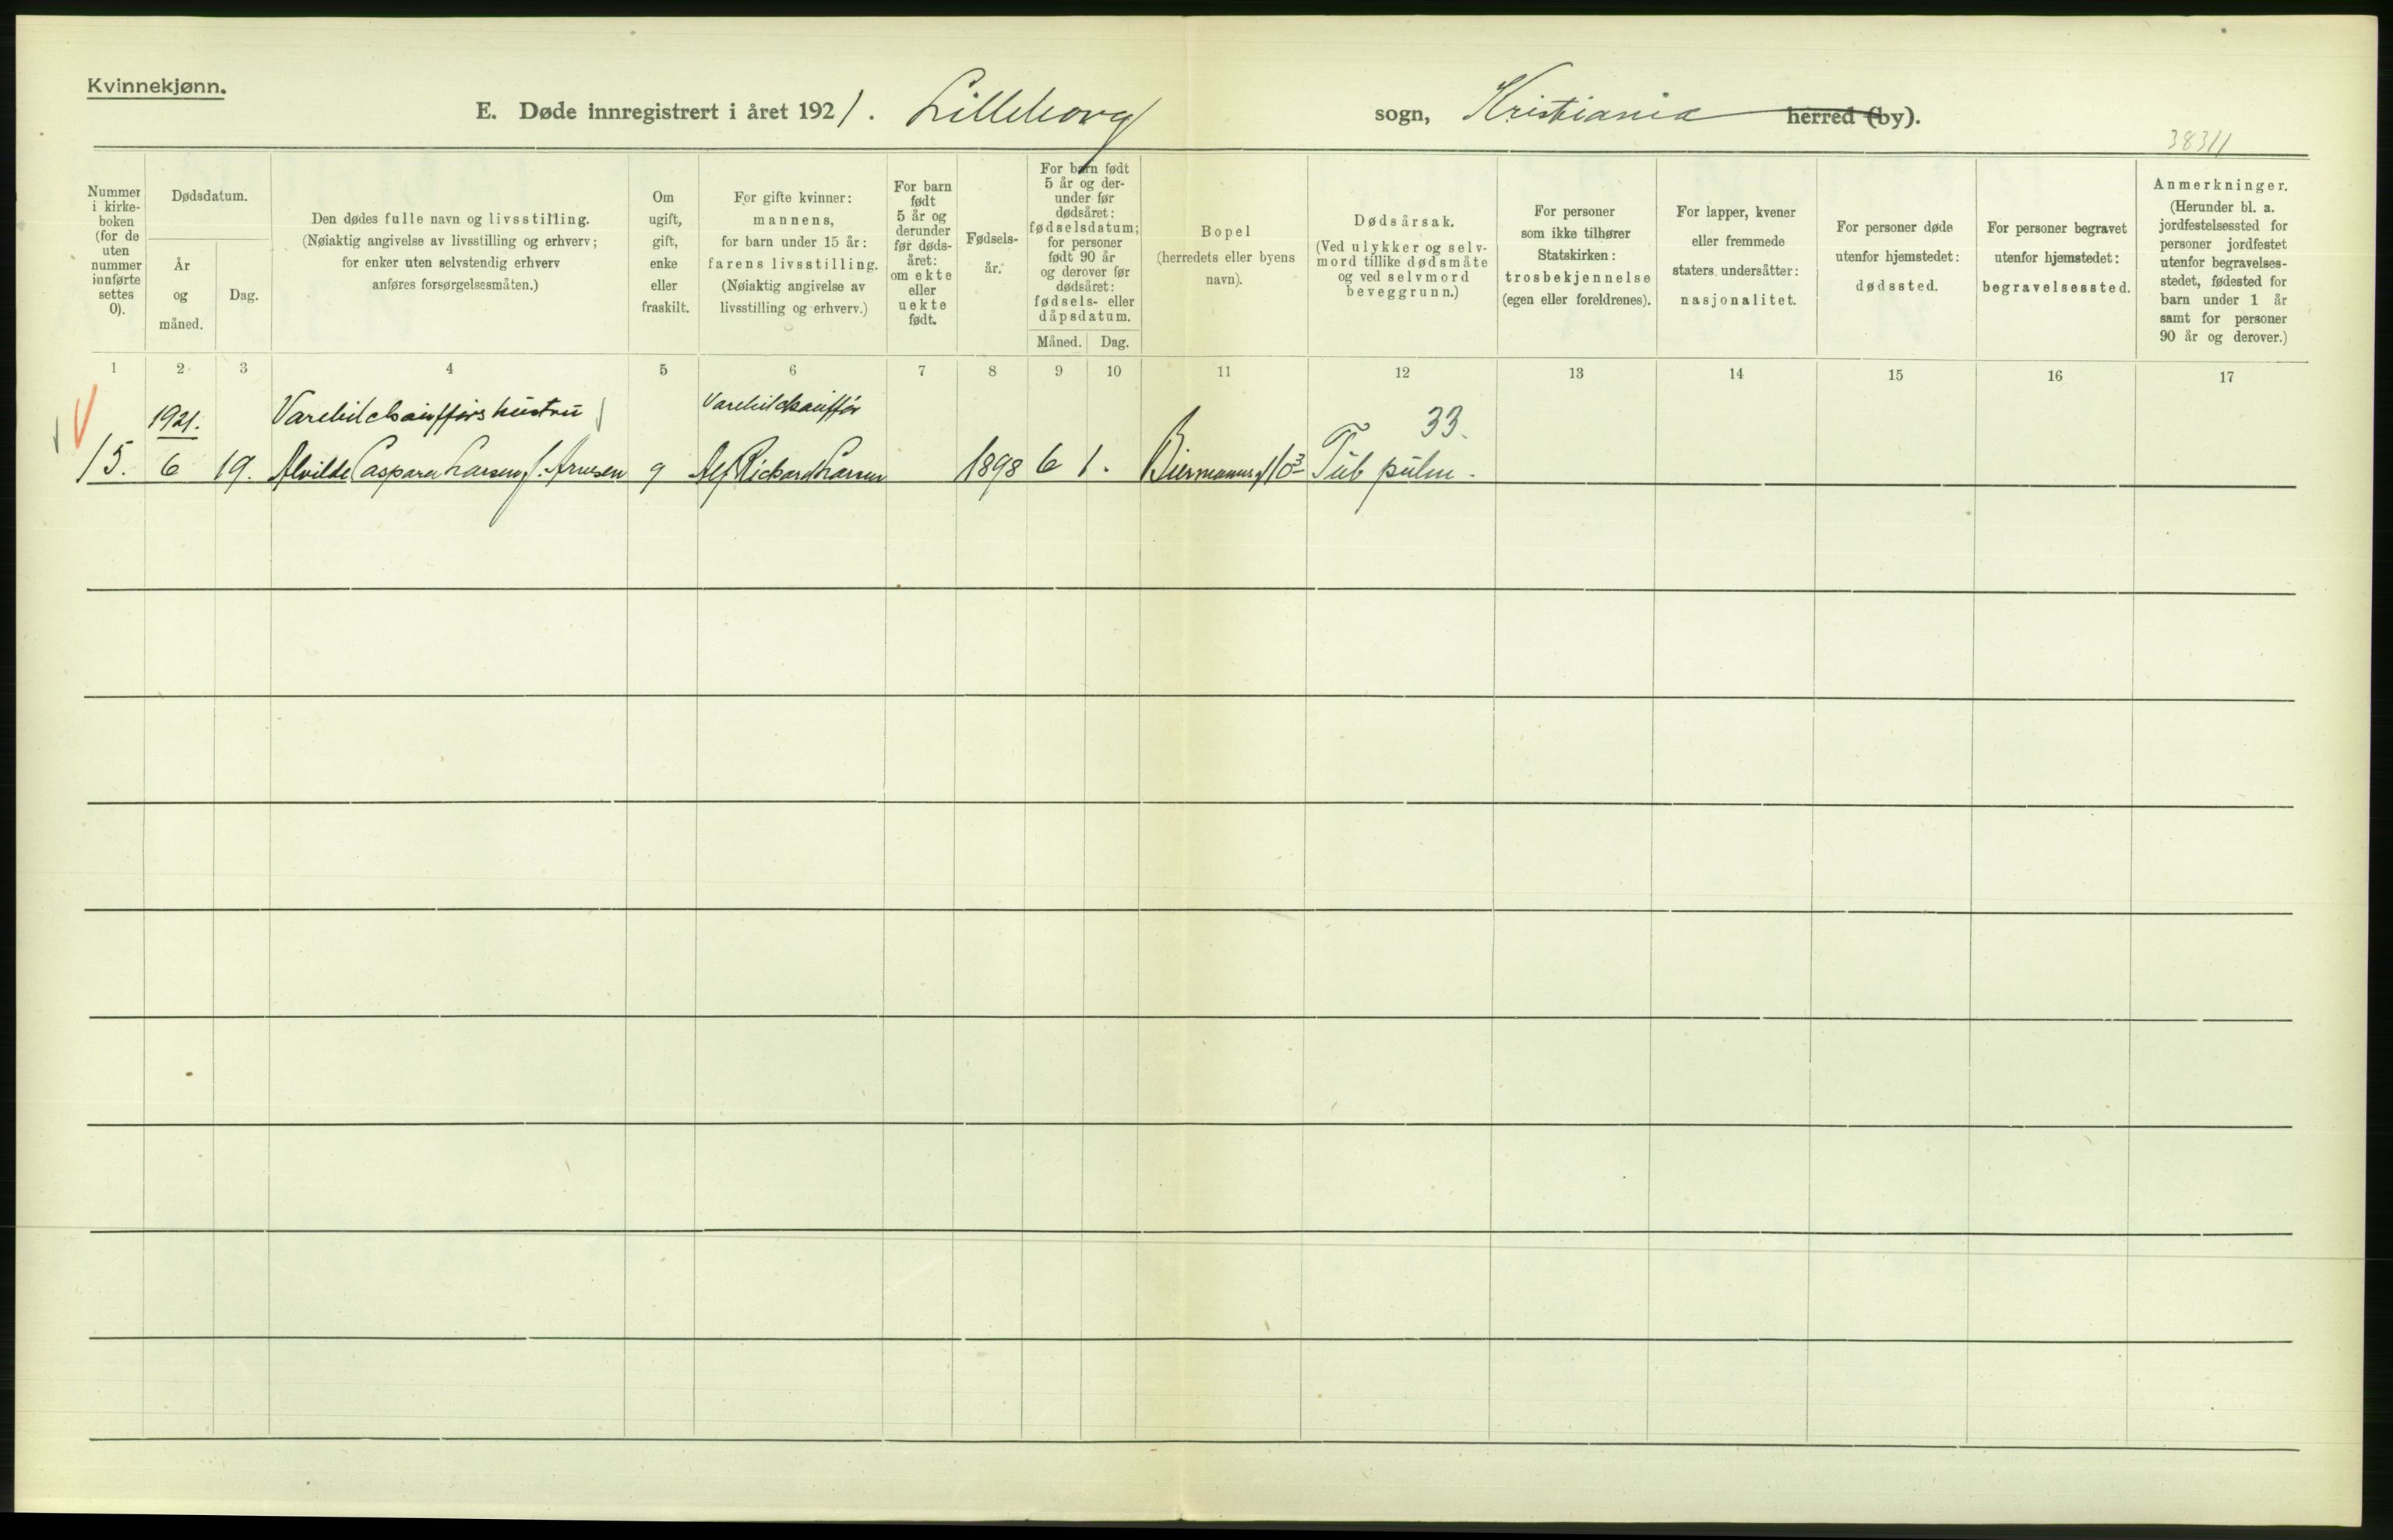 Kvinnekjønn.
E. Døde innregistrert i året 1921. Lilleborg sogn, Kristiania herred (by).
38311
Nummer i kirke-boken (for de uten nummer innførte settes 0).
Dødsdatum.
År og måned.
Dag.
Den dødes fulle navn og livsstilling.
(Nøiaktig angivelse av livsstilling og erhverv;
for enker uten selvstendig erhverv
anføres forsørgelsesmåten.)
Om
ugift,
gift,
enke
eller
fraskilt.
For gifte kvinner:
mannens,
for barn under 15 år:
farens livsstilling.
(Nøiaktig angivelse av
livsstilling og erhverv.)
For barn
født
5 år og
derunder
før døds-
året:
om ekte
eller
uekte
født.
Fødsels-
år.
For barn født
5 år og der-
under før
dødsåret:
fødselsdatum;
for personer
født 90 år
og derover før
dødsåret:
fødsels- eller
dåpsdatum.
Måned. Dag.
Bopel
(herredets eller byens
navn).
Dødsårsak.
(Ved ulykker og selv-
mord tillike dødsmåte
og ved selvmord
beveggrunn.)
For personer
som ikke tilhører
Statskirken:
trosbekjennelse
(egen eller foreldrenes).
For lapper, kvener
eller fremmede
staters undersåtter:
nasjonalitet.
For personer døde
utenfor hjemstedet:
dødssted.
For personer begravet
utenfor hjemstedet:
begravelsessted.
Anmerkninger.
(Herunder bl. a.
jordfestelsessted for
personer jordfestet
utenfor begravelses-
stedet, fødested for
barn under 1 år
samt for personer
90 år og derover.)
1 2 3 4 5 6 7 8 9 10 11 12 13 14 15 16 17
1921. Varebilchaufførs hustru Varebilchauffør 33.
15. 6 19. Alvilde Caspara Larsen f. Arnesen g Alf Rickard Larsen 1898 6 1. Biermannsg 10³ Tub pulm.